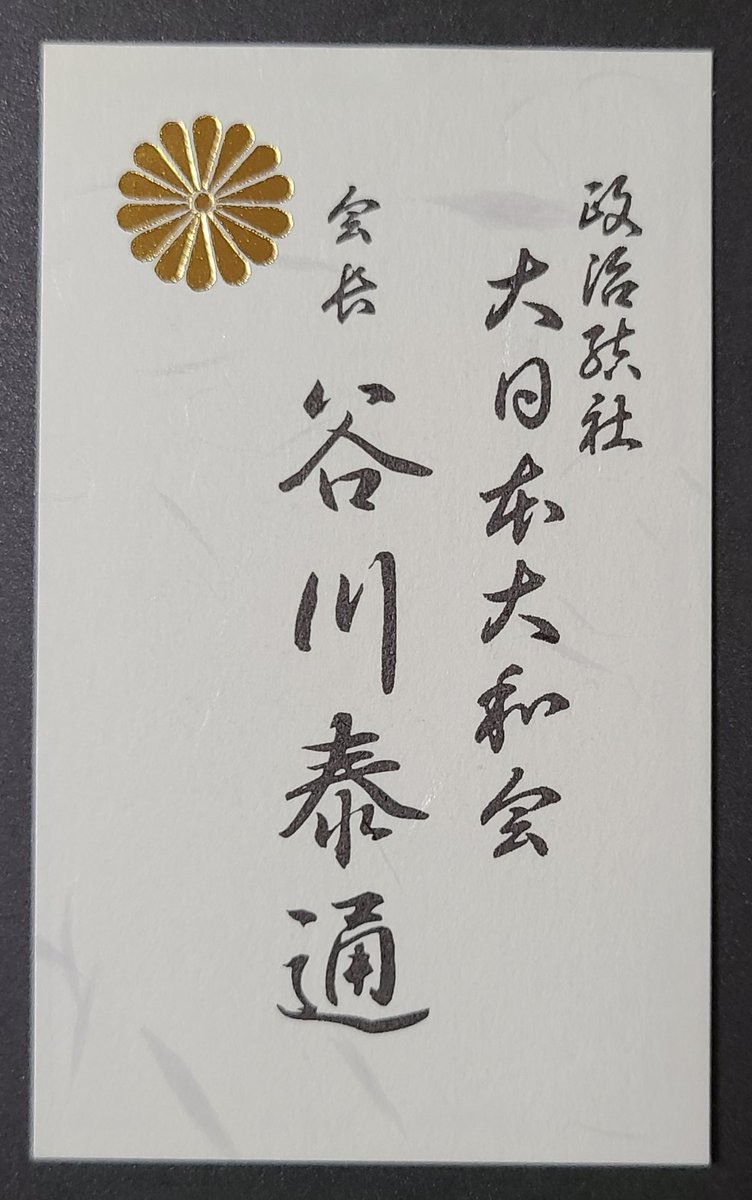 政治結社
大日本大和会
会長 谷川泰通